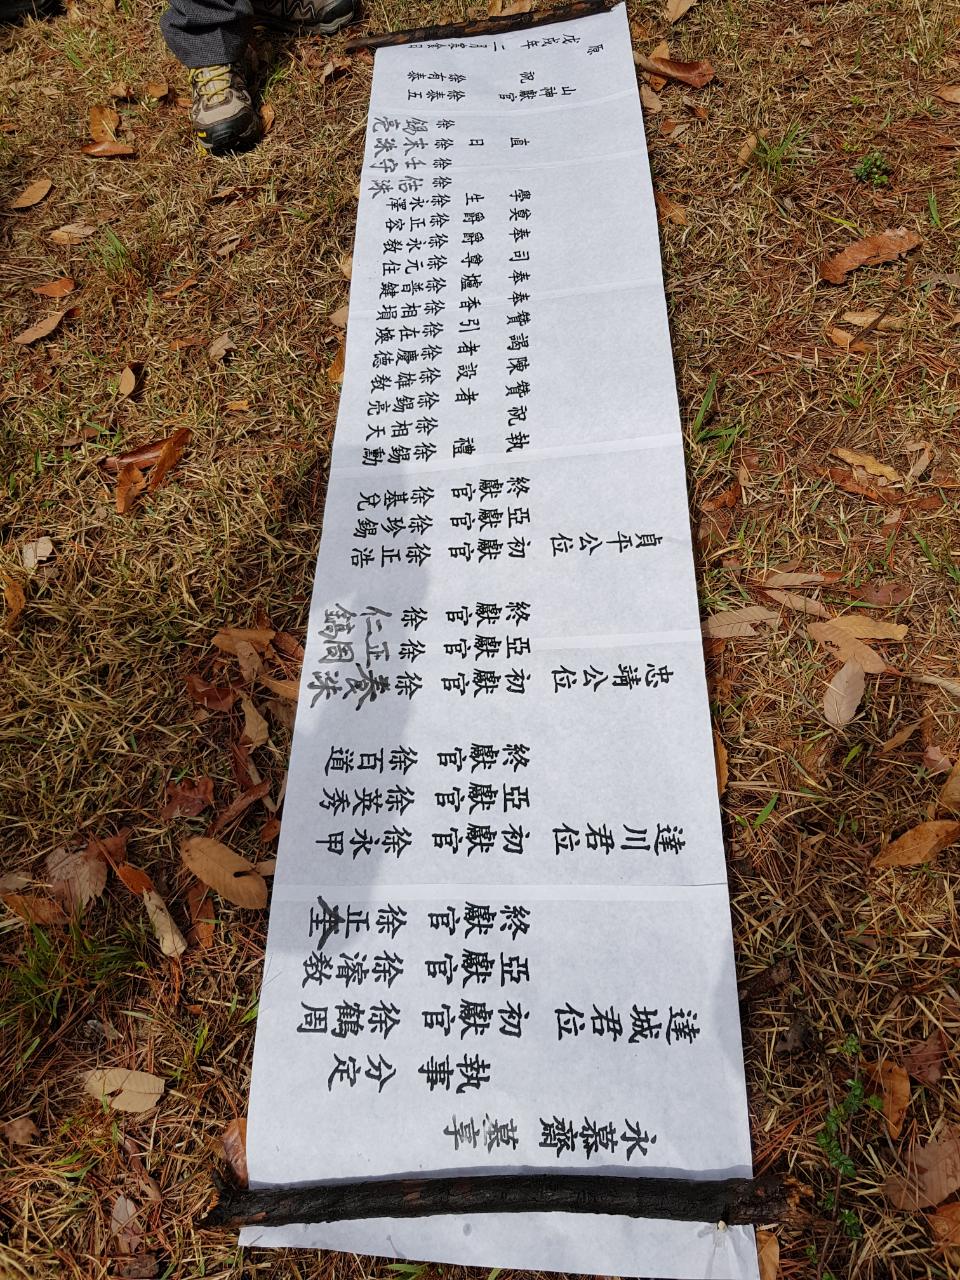 永慕齋墓享
執事分定
達城君位 初獻官 徐鶴周
亞獻官 徐濬教
終獻官 徐正奎
達川君位 初獻官 徐永甲
亞獻官 徐英秀
終獻官 徐百道
忠靖公位 初獻官 徐養洙
亞獻官 徐正周
終獻官 徐仁鎬
貞平公位 初獻官 徐正浩
亞獻官 徐珍錫
終獻官 徐基兌
執禮 徐錫動
祝 徐相天
贊者 徐錫亮
陳設 徐雄教
謁者 徐慶德
贊引 徐在煥
奉香 徐相塤
奉爐 徐普鍵
司尊 徐元住
奉爵 徐永教
奠爵 徐正容
學生 徐永澤
徐佶洙
徐壬守
直日 徐末洙
徐錫亮
山神獻官 徐泰五
祝 徐有泰
戊戌年二月寒食日
原